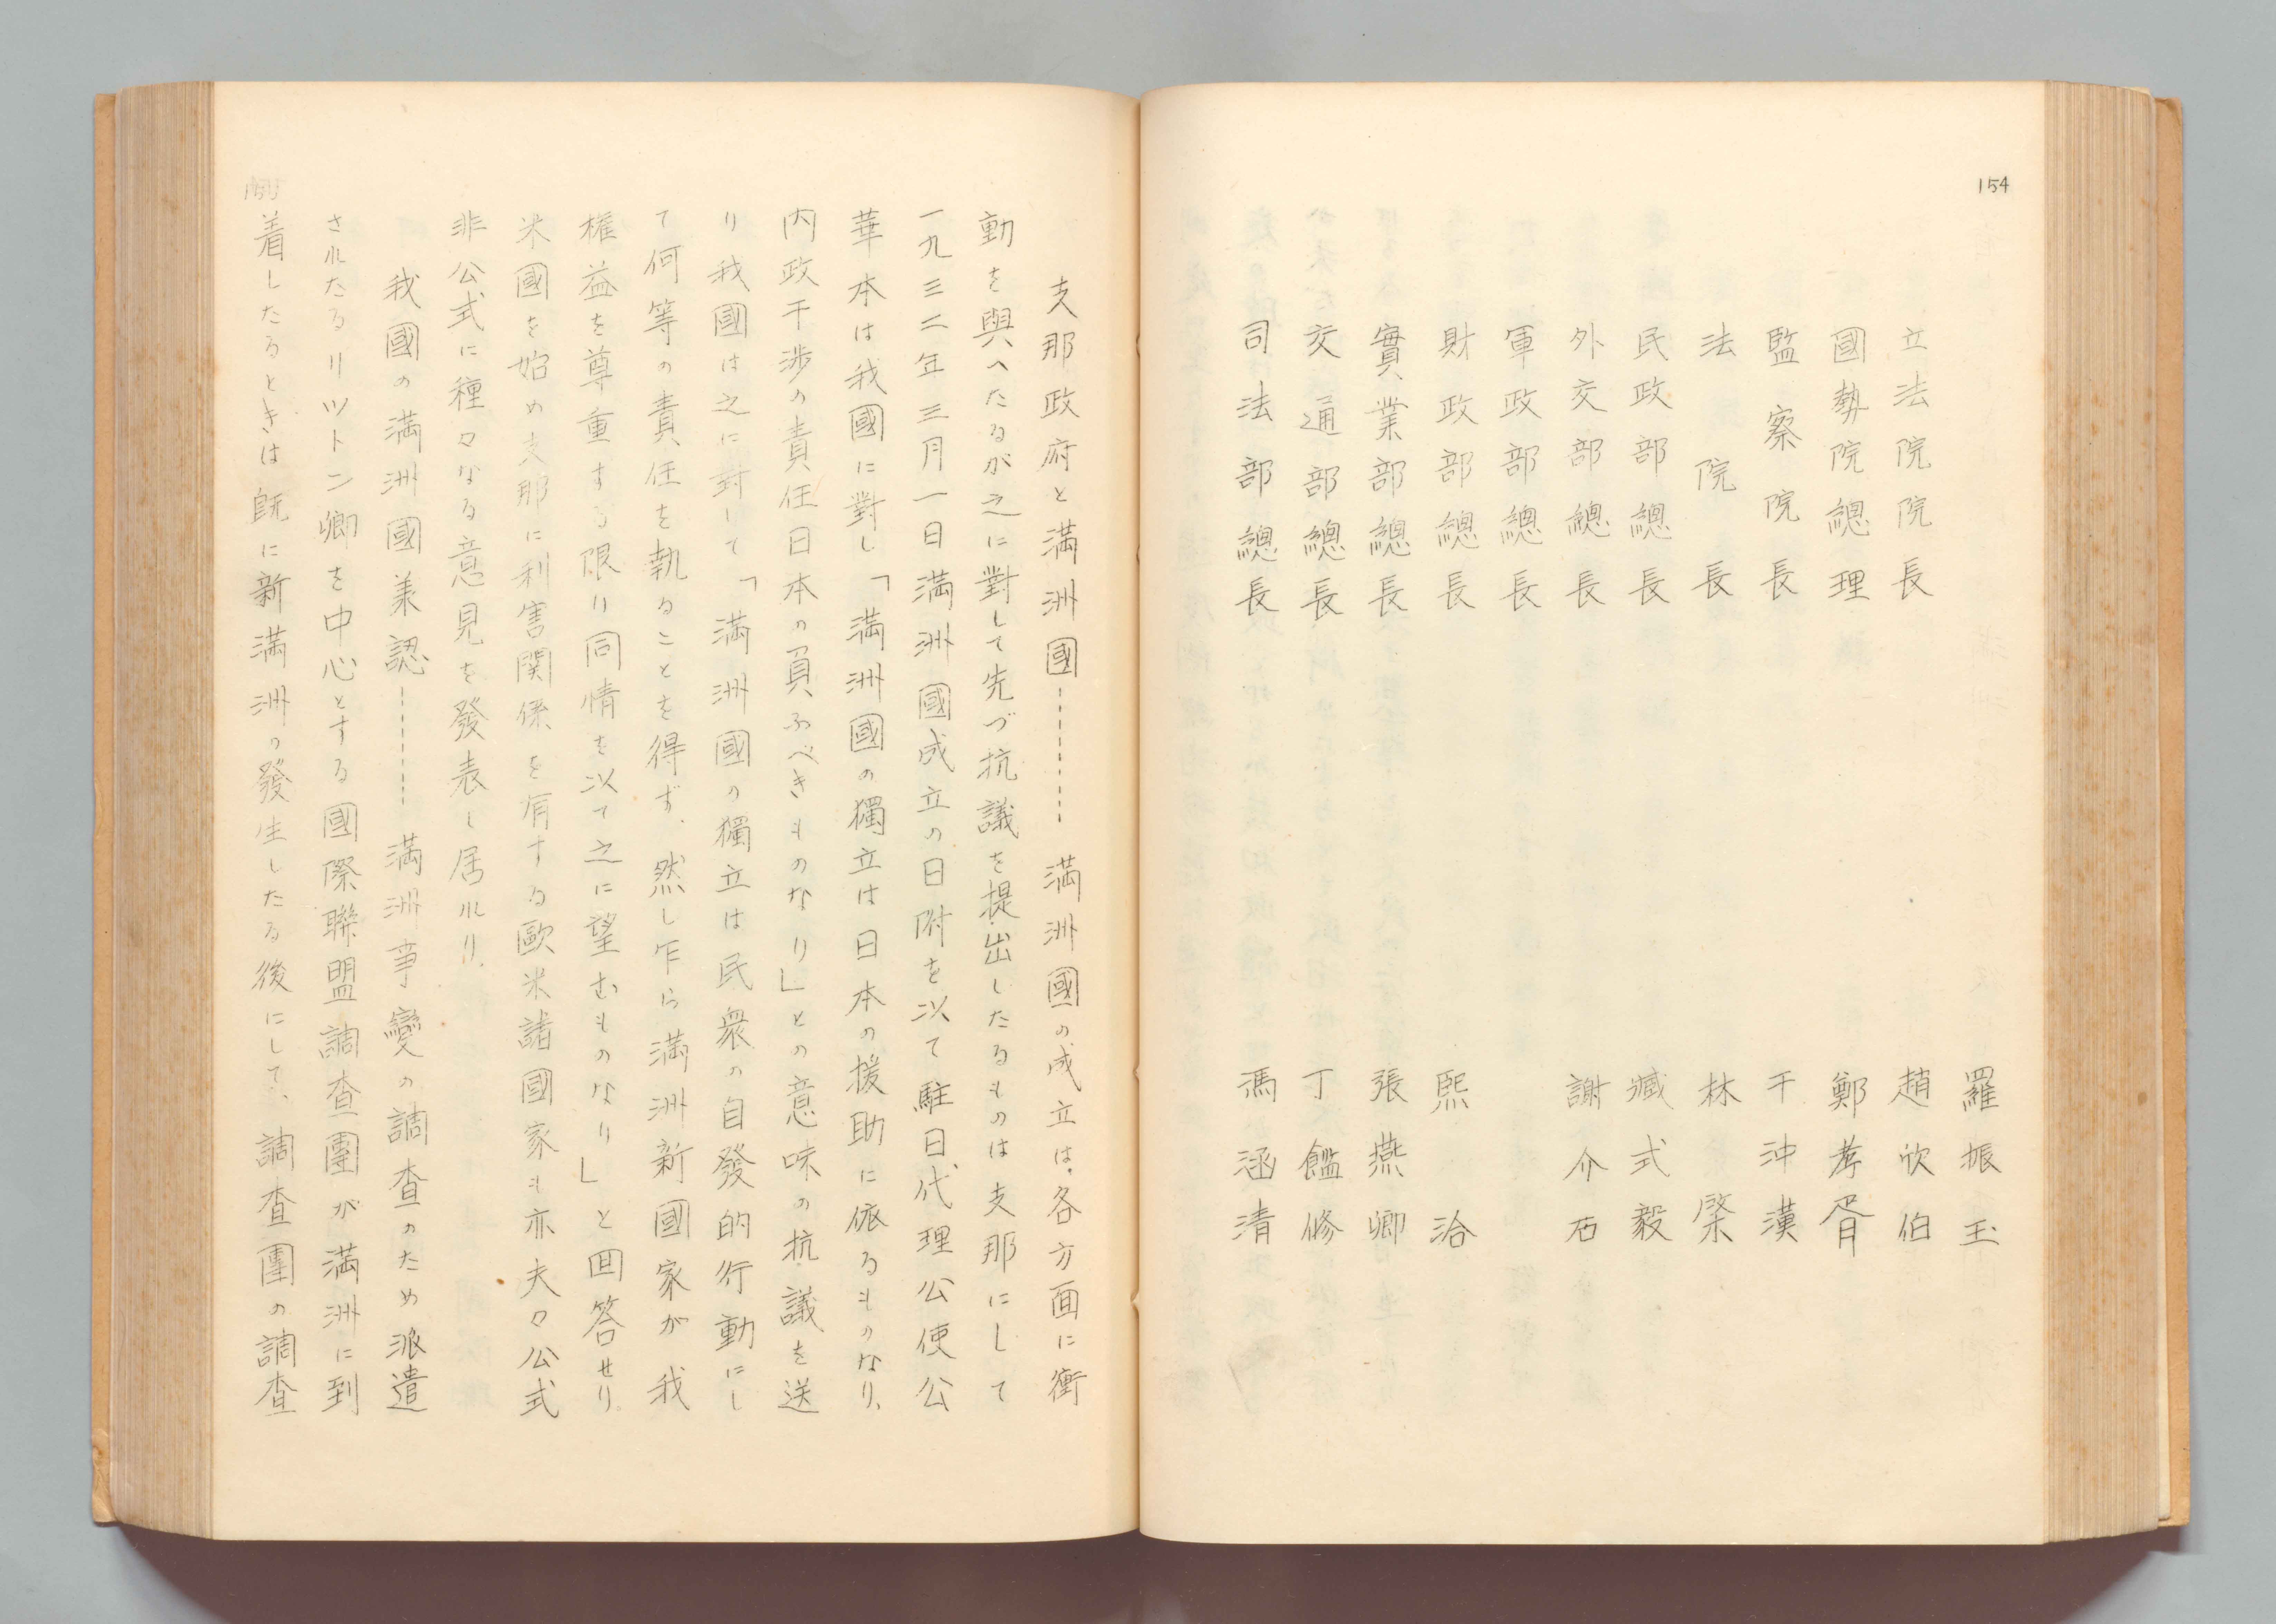 154
羅振玉
立法院院長 趙欣伯
國勢院總理 鄭孝胥
監察院院長 于冲漢
法院長 林棨
民政部總長 臧式毅
外交部總長 謝介石
軍政部總長
財政部總長 熙洽
實業部總長 張燕卿
交通部總長 丁鑑修
司法部總長 馮涵清
支那政府と満洲國………満洲國の成立は各方面に衝
動を與へたるが之に對して先づ抗議を提出したるものは支那にして
一九三二年三月一日満洲國成立の日附を以て駐日代理公使公
華本は我國に對し「満洲國の獨立は日本の援助に依るものなり、
内政干渉の責任日本の負ふべきものなり」との意味の抗議を送
り我國は之に對して「満洲國の獨立は民衆の自發的行動にし
て何等の責任を執ることを得ず、然し乍ら満洲新國家が我
権益を尊重する限り同情を以て之に望むものなり」と回答せり。
米國を始め支那に利害関係を有する歐米諸國家も亦夫々公式
非公式に種々なる意見を發表し居れり.
我國の満洲國羕認………満洲事變の調査のため派遣
されたるリツトン卿を中心とする國際聯盟調査團が満洲に到
着したるときは既に新満洲の發生したる後にして、調査團の調査